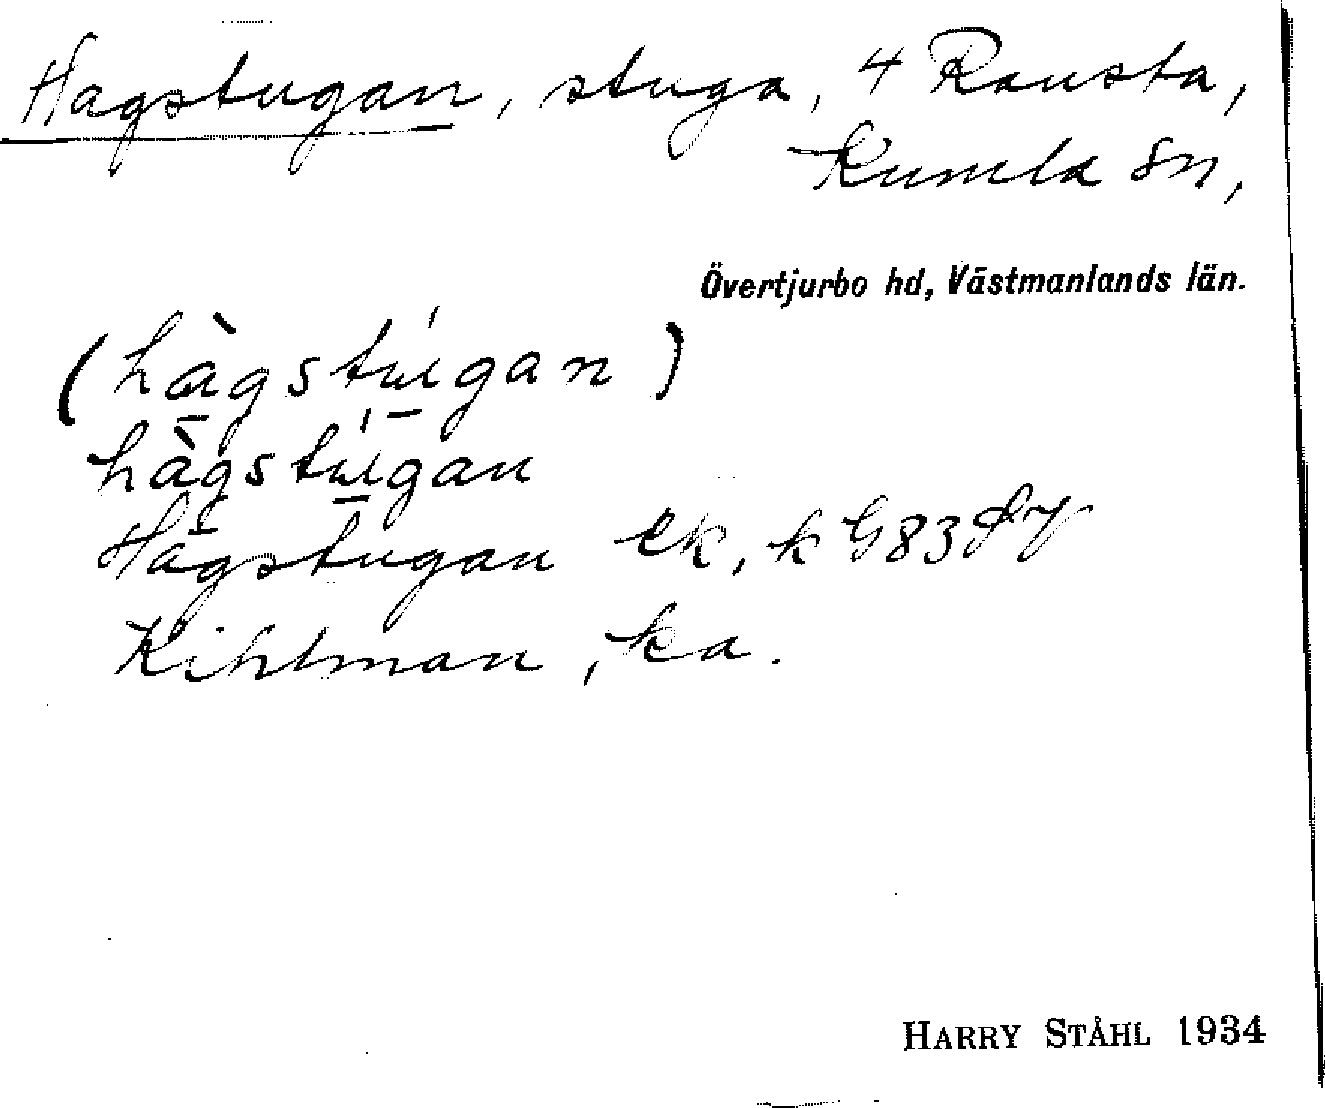 Hagstugan, stuga, 4 Rausta,
Kumla sn,
Övertjurbo hd, Västmanlands län.
(hàgstu̍gan)
hàgstu̍gan
Hagstugan ek, k G83
Kihlman, ka.
HARRY STÅHL 1934